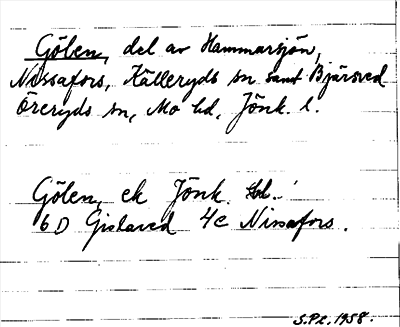 Gölen, del av Hammarsjön,
Nissafors, Källeryds sn samt Bjärsved
Öreryds sn, Mo hd, Jönk. l.
Gölen, ek Jönk.
6D Gislaved 4c Nissafors.
S.Pl. 1958.